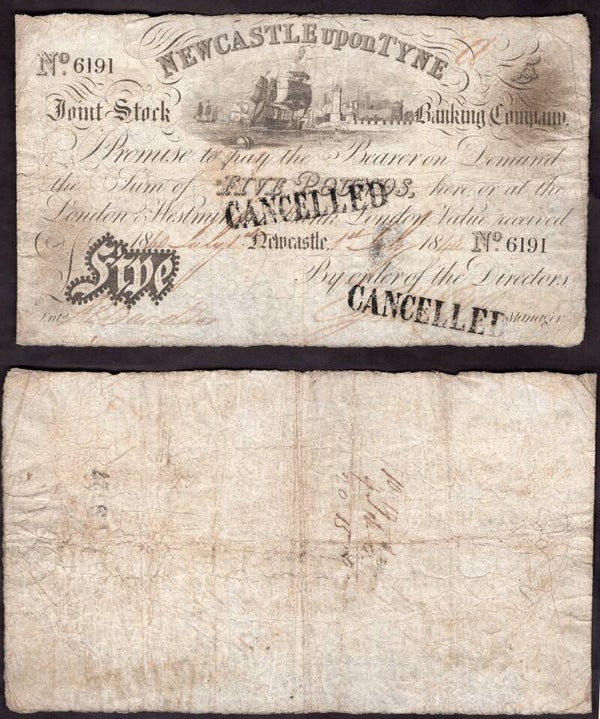 NEWCASTLE upon TYNE
Nº 6191
5
Joint Stock Banking Company,
I Promise to pay the Bearer on Demand
the Sum of FIVE POUNDS, here or at the
CANCELLED
London & Westminster Bank, London Value received
1844 July 1st Newcastle, 1st July 1844 Nº 6191
£ Five
By order of the Directors
CANCELLED
Entd
Manager